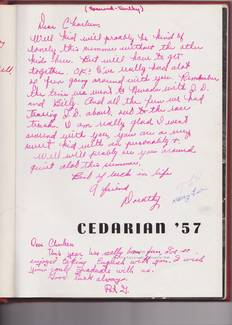 (Second-Entry)
Dear Charleen
Well kid will proably be kind of
lonely this summer without the other
kids here. But we'll have to get
together. OK? I've really had alot
of fun going around with you. Remember
the time we went to Nevada with J.D.
and Billy. And all the fun we had
teasing J.D. about
I am really glad I went
around with you, you are a very
sweet kid with a personality +
Well will proably see you around
quiet alot this summer.
Best of luck in life
A friend,
Dorothy
CEDARIAN '57
Dear Charleen
This year has really been fun. I've so
enjoyed taking English with you. I wish
you could graduate with us.
Good luck always,
Pat G.